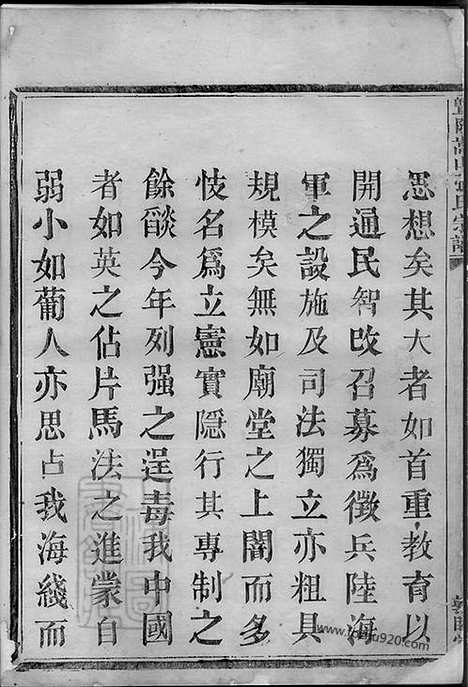 思想矣其大者如首重教育以
開通民智改召募爲徵兵陸海
軍之設施及司法獨立亦粗具
規模矣無如廟堂之上闇而多
忮名爲立憲實隱行其專制之
餘燄今年列强之逞毒我中國
者如英之佔片馬法之進蒙自
弱小如葡人亦思占我海綫而